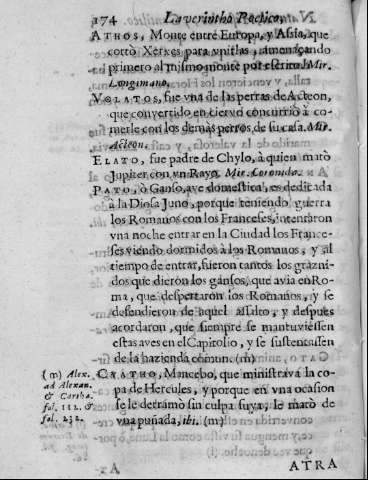 174 Laverintho Poetico,
ATHOS, Monte entre Europa, y Assia, que
cortò Xerxes para vnirlas, amenaçando
primero al mismo monte por escrito. Mir.
Longimano.
VOLATOS, fue vna de las perras de Acteon,
que convertido en ciervo concurriò à co-
merle con los demas perros, de su casa. Mir.
Acteon.
ELATO, fue padre de Chylo, à quien matò
Jupiter con vn Rayo. Mir. Coronide.
PATO, ò Ganso, ave domestica, es dedicada
à la Diosa Juno, porque teniendo guerra
los Romanos con los Franceses, intentaron
vna noche entrar en la Ciudad los France-
ses viendo dormidos à los Romanos, y al
tiempo de entrar, fueron tantos los grazni-
dos que dieron los gansos, que avia en Ro-
ma, que despertaron los Romanos, y se
defendieron de aquel asulto, y despues
acordaron, que siempre se mantuviessen
estas aves en el Capitolio, y se sustentassen
de la hazienda comun. (m)
CYATHO, Mancebo, que ministrava la co-
pa de Hercules, y porque en vna ocasion
se le derramò sin culpa suya, le matò de
vna puñada, ibi. (m)
(m) Alex.
ad Alexan.
& Cartha.
fol. 112. &
fol. 232.
ATRA